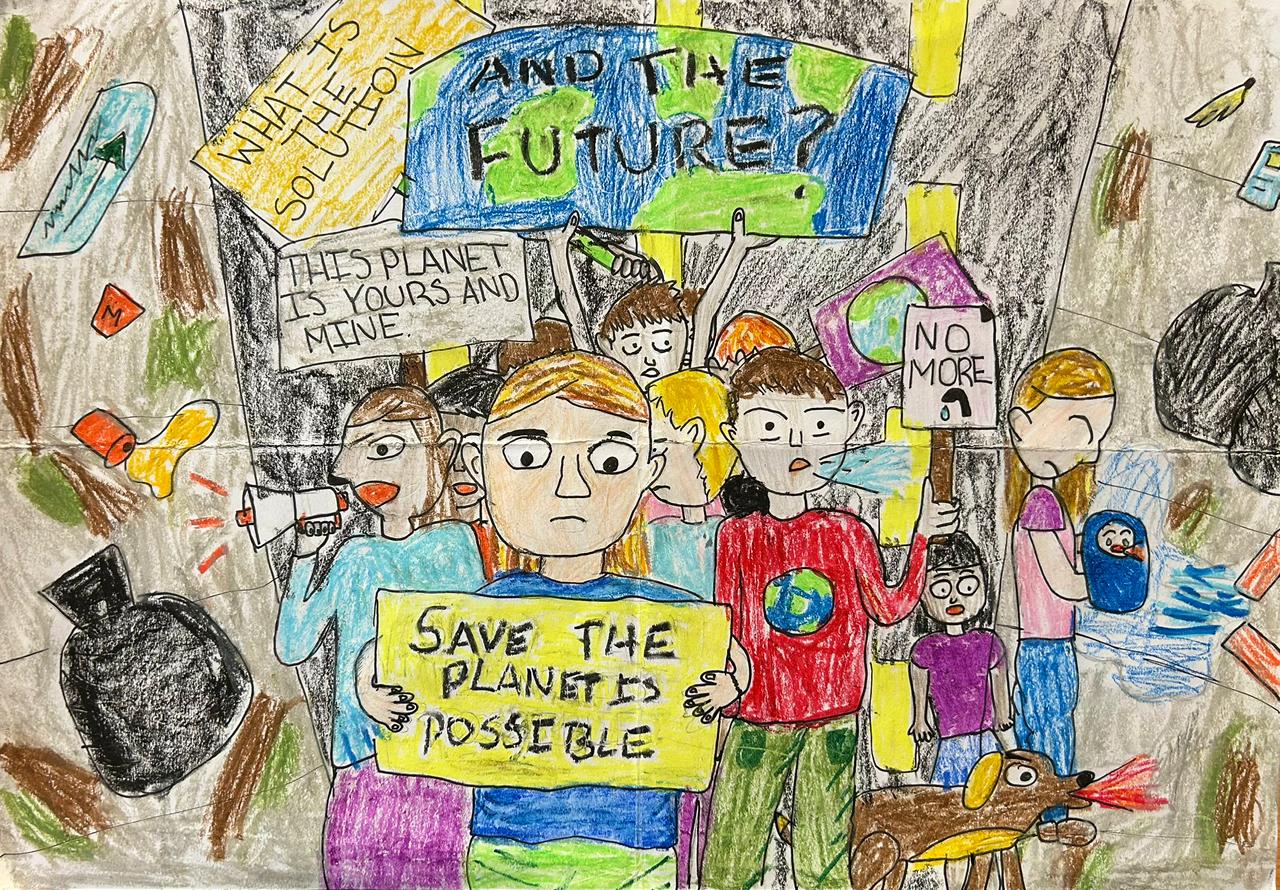 WHAT IS
THE
SOLUTION
AND THE
FUTURE?
THIS PLANET
IS YOURS AND
MINE.
NO
MORE
M
SAVE THE
PLANET IS
POSSIBLE